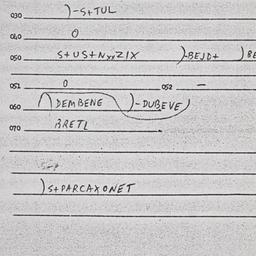 030 )-S+TUL
040 0
050 S+US+NyyZIX )-BEJD+ )BE
051 0 052 -
060 DEMBENE )-DUBEVE)
070 BRETL
)S+PARCAXONET